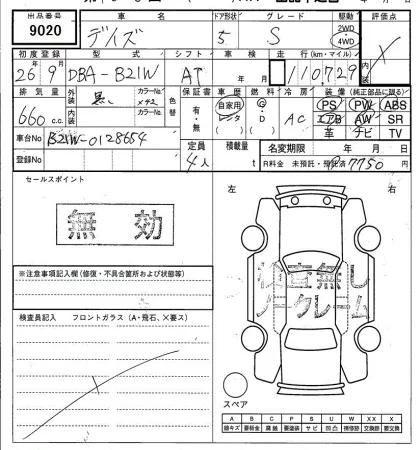 出品番号 車名 ドア形状 グレード 駆動 評価点
9020 デイズ 5 S 2WD 4WD
初度登録 型式 シフト 車検 走行(km・マイル) 内装
26年9月 DBA-B21W AT 年 月 110,729
排気量 外装 カラーNo. 色替 保証書 車歴 燃料 冷房 装備(純正部品に限る)
660 c.c. 黒 X42 有・無 自家用 レンタ G・D AC PS PW ABS
内装 カラーNo. エアB AW SR
革 ナビ TV
車台No B21W-0128654 定員 積載量 名変期限 年 月 日
登録No 4人 t R料金 未預託・預託済 7750
セールスポイント
無効
左 右
※注意事項記入欄(修復・不具合箇所および状態等)
検査無し
ノークレーム
検査員記入 フロントガラス(A・飛石、X要ス)
スペア
A B C P S U W X XX
線キズ 要板金 腐蝕 要塗装 サビ 凹凸 補修跡 交換跡 要交換